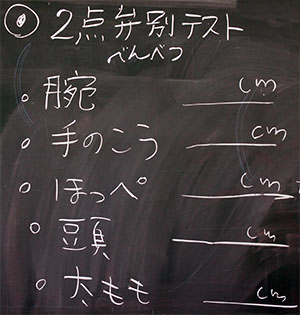 2点弁別テスト
べんべつ
。腕 cm
。手のこう cm
。ほっぺ cm
。頭 cm
。太もも cm